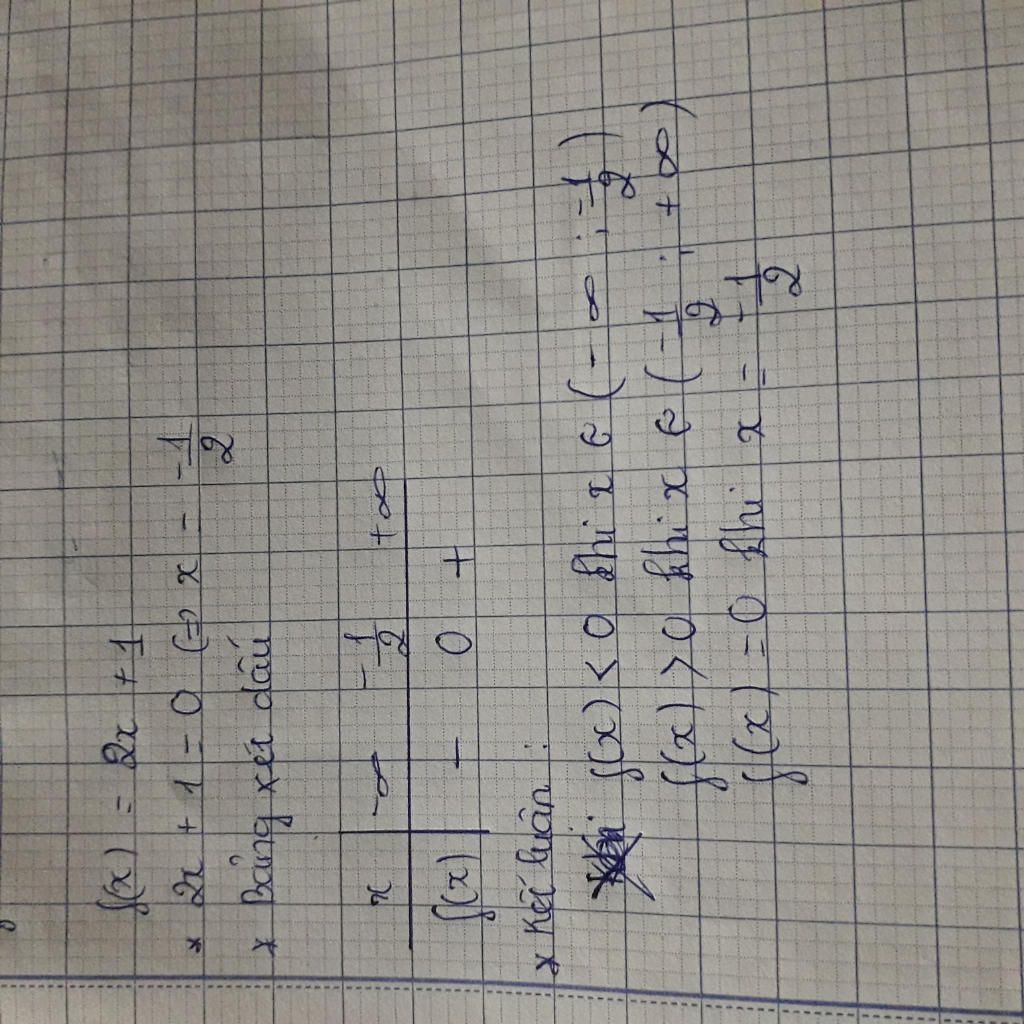 f(x) = 2x + 1
* 2x + 1 = 0 (=> x - -1/2
* Bảng xét dấu
x -∞ -1/2 +∞
f(x) - 0 +
* Kết luận :
f(x) < 0 khi x ∈ (- ∞ ; -1/2)
f(x) > 0 khi x ∈ (-1/2 ; + ∞)
f(x) = 0 khi x = -1/2